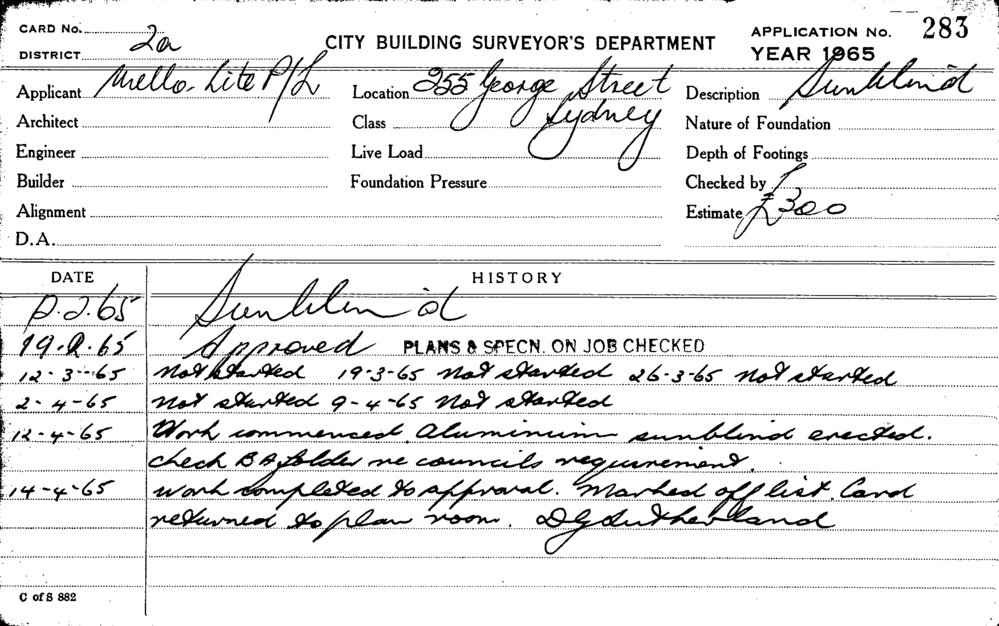 CARD No.
DISTRICT 2a
CITY BUILDING SURVEYOR'S DEPARTMENT
APPLICATION No. 283
YEAR 1965
Applicant Mello-Lite P/L
Location 255 George Street
Sydney
Description Sunblind
Architect
Class
Nature of Foundation
Engineer
Live Load
Depth of Footings
Builder
Foundation Pressure
Checked by
Alignment
Estimate £300
D.A.
DATE HISTORY
2.65 Sunblind
19.2.65 Approved PLANS & SPECN. ON JOB CHECKED
12-3-65 Not started 19-3-65 Not started 26-3-65 Not started
2-4-65 Not started 9-4-65 Not started
12-4-65 Work commenced. Aluminium sunblind erected.
Check BA folder re councils requirement.
14-4-65 Work completed to approval. Marked off list. Card
returned to plan room. DG Sutherland
C of S 882